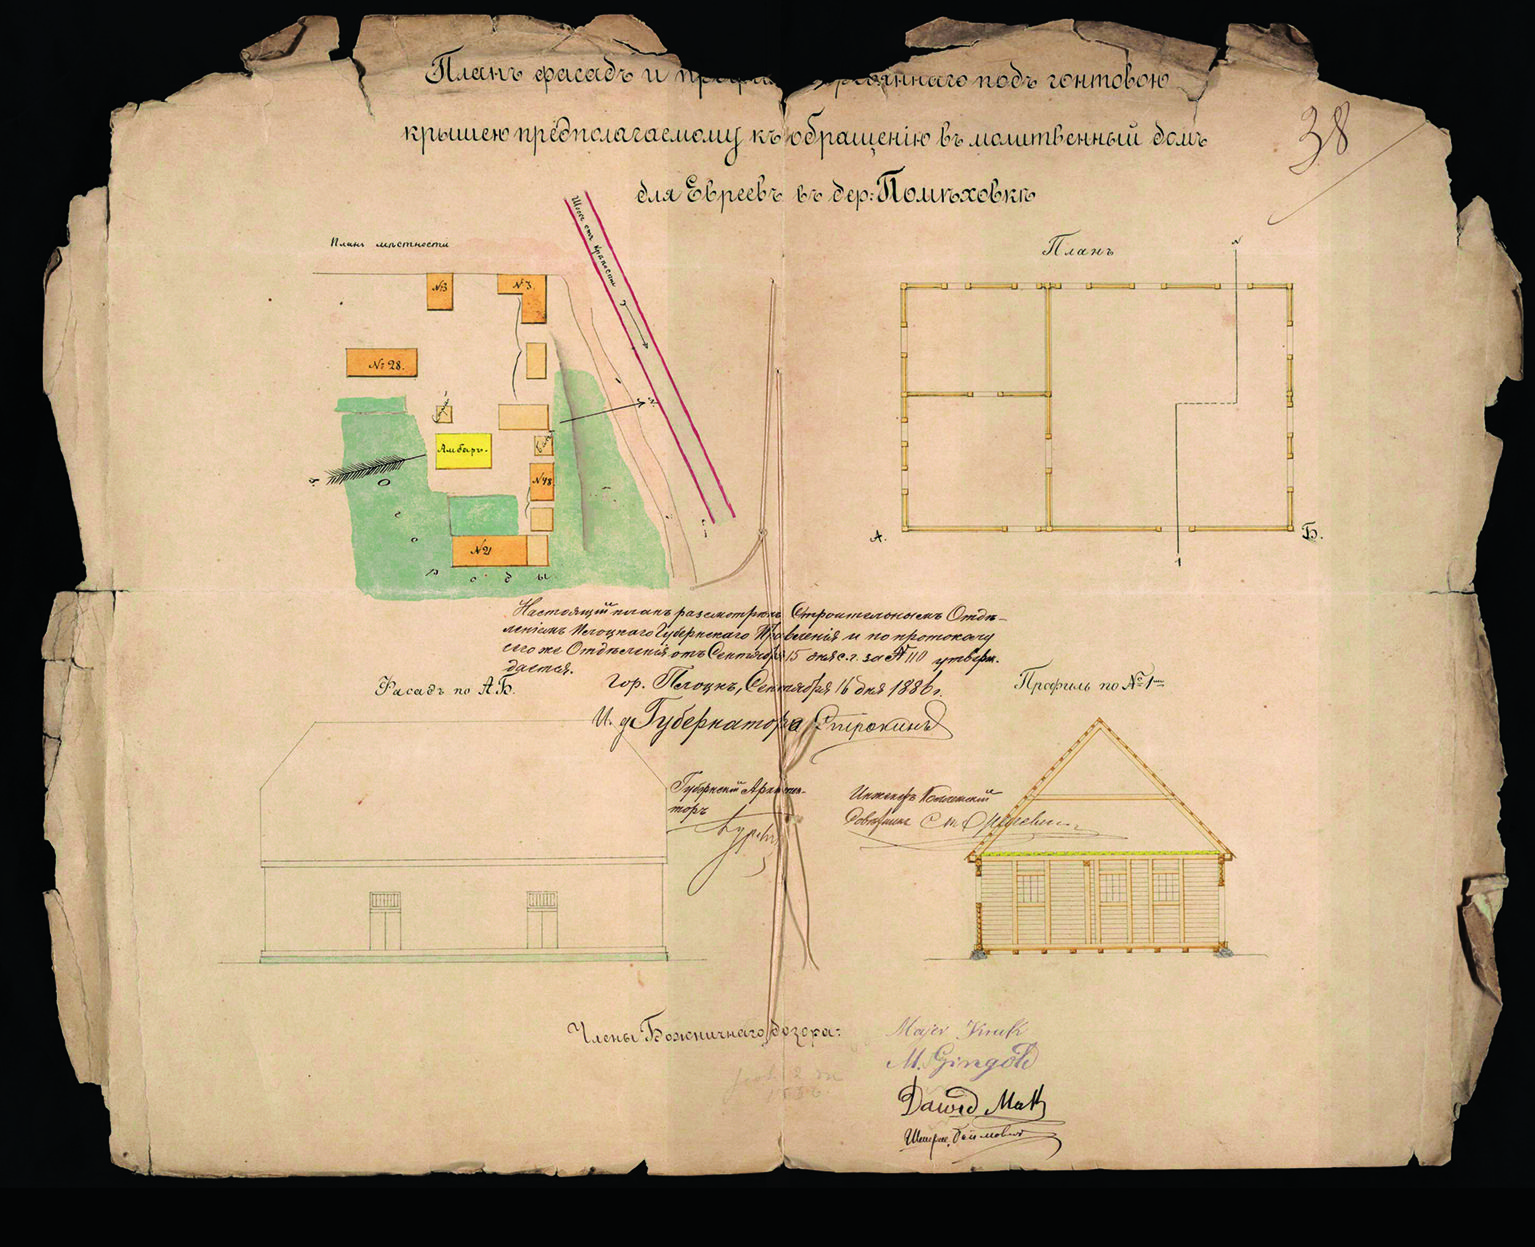 Планъ фасадъ и подъ гонтовою
крышею предполагаемому къ обращенію въ молитвенный домъ
для Евреевъ въ дер: Помѣховкѣ
38
Планъ мѣстности
Шоссе отъ Крѣпости
Планъ
№3
№ 28.
Амбаръ.
№48
№21
О г о р о д ы
А.
Б.
1
Настоящій планъ разсмотрѣнъ Строительнымъ Отдѣ-
леніемъ Плоцкаго Губернскаго Правленія и по протоколу
его же Отдѣленія отъ Сентября 15 дня с.г. за № 110 утверж-
дается.
гор. Плоцкъ, Сентября 16 дня 188 г.
Фасадъ по А.Б.
Профиль по № 1
И. д. Губернатора Строкинъ
Губернскій Архитек-
торъ
Инженеръ
Члены Божничнаго дозора:
Majer
M. Gingold
Dawid Mak